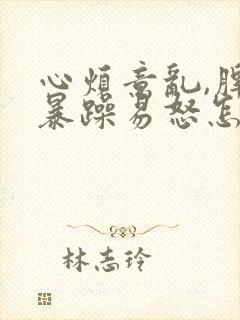 心煩意亂,脾
暴躁易怒怎
林志玲